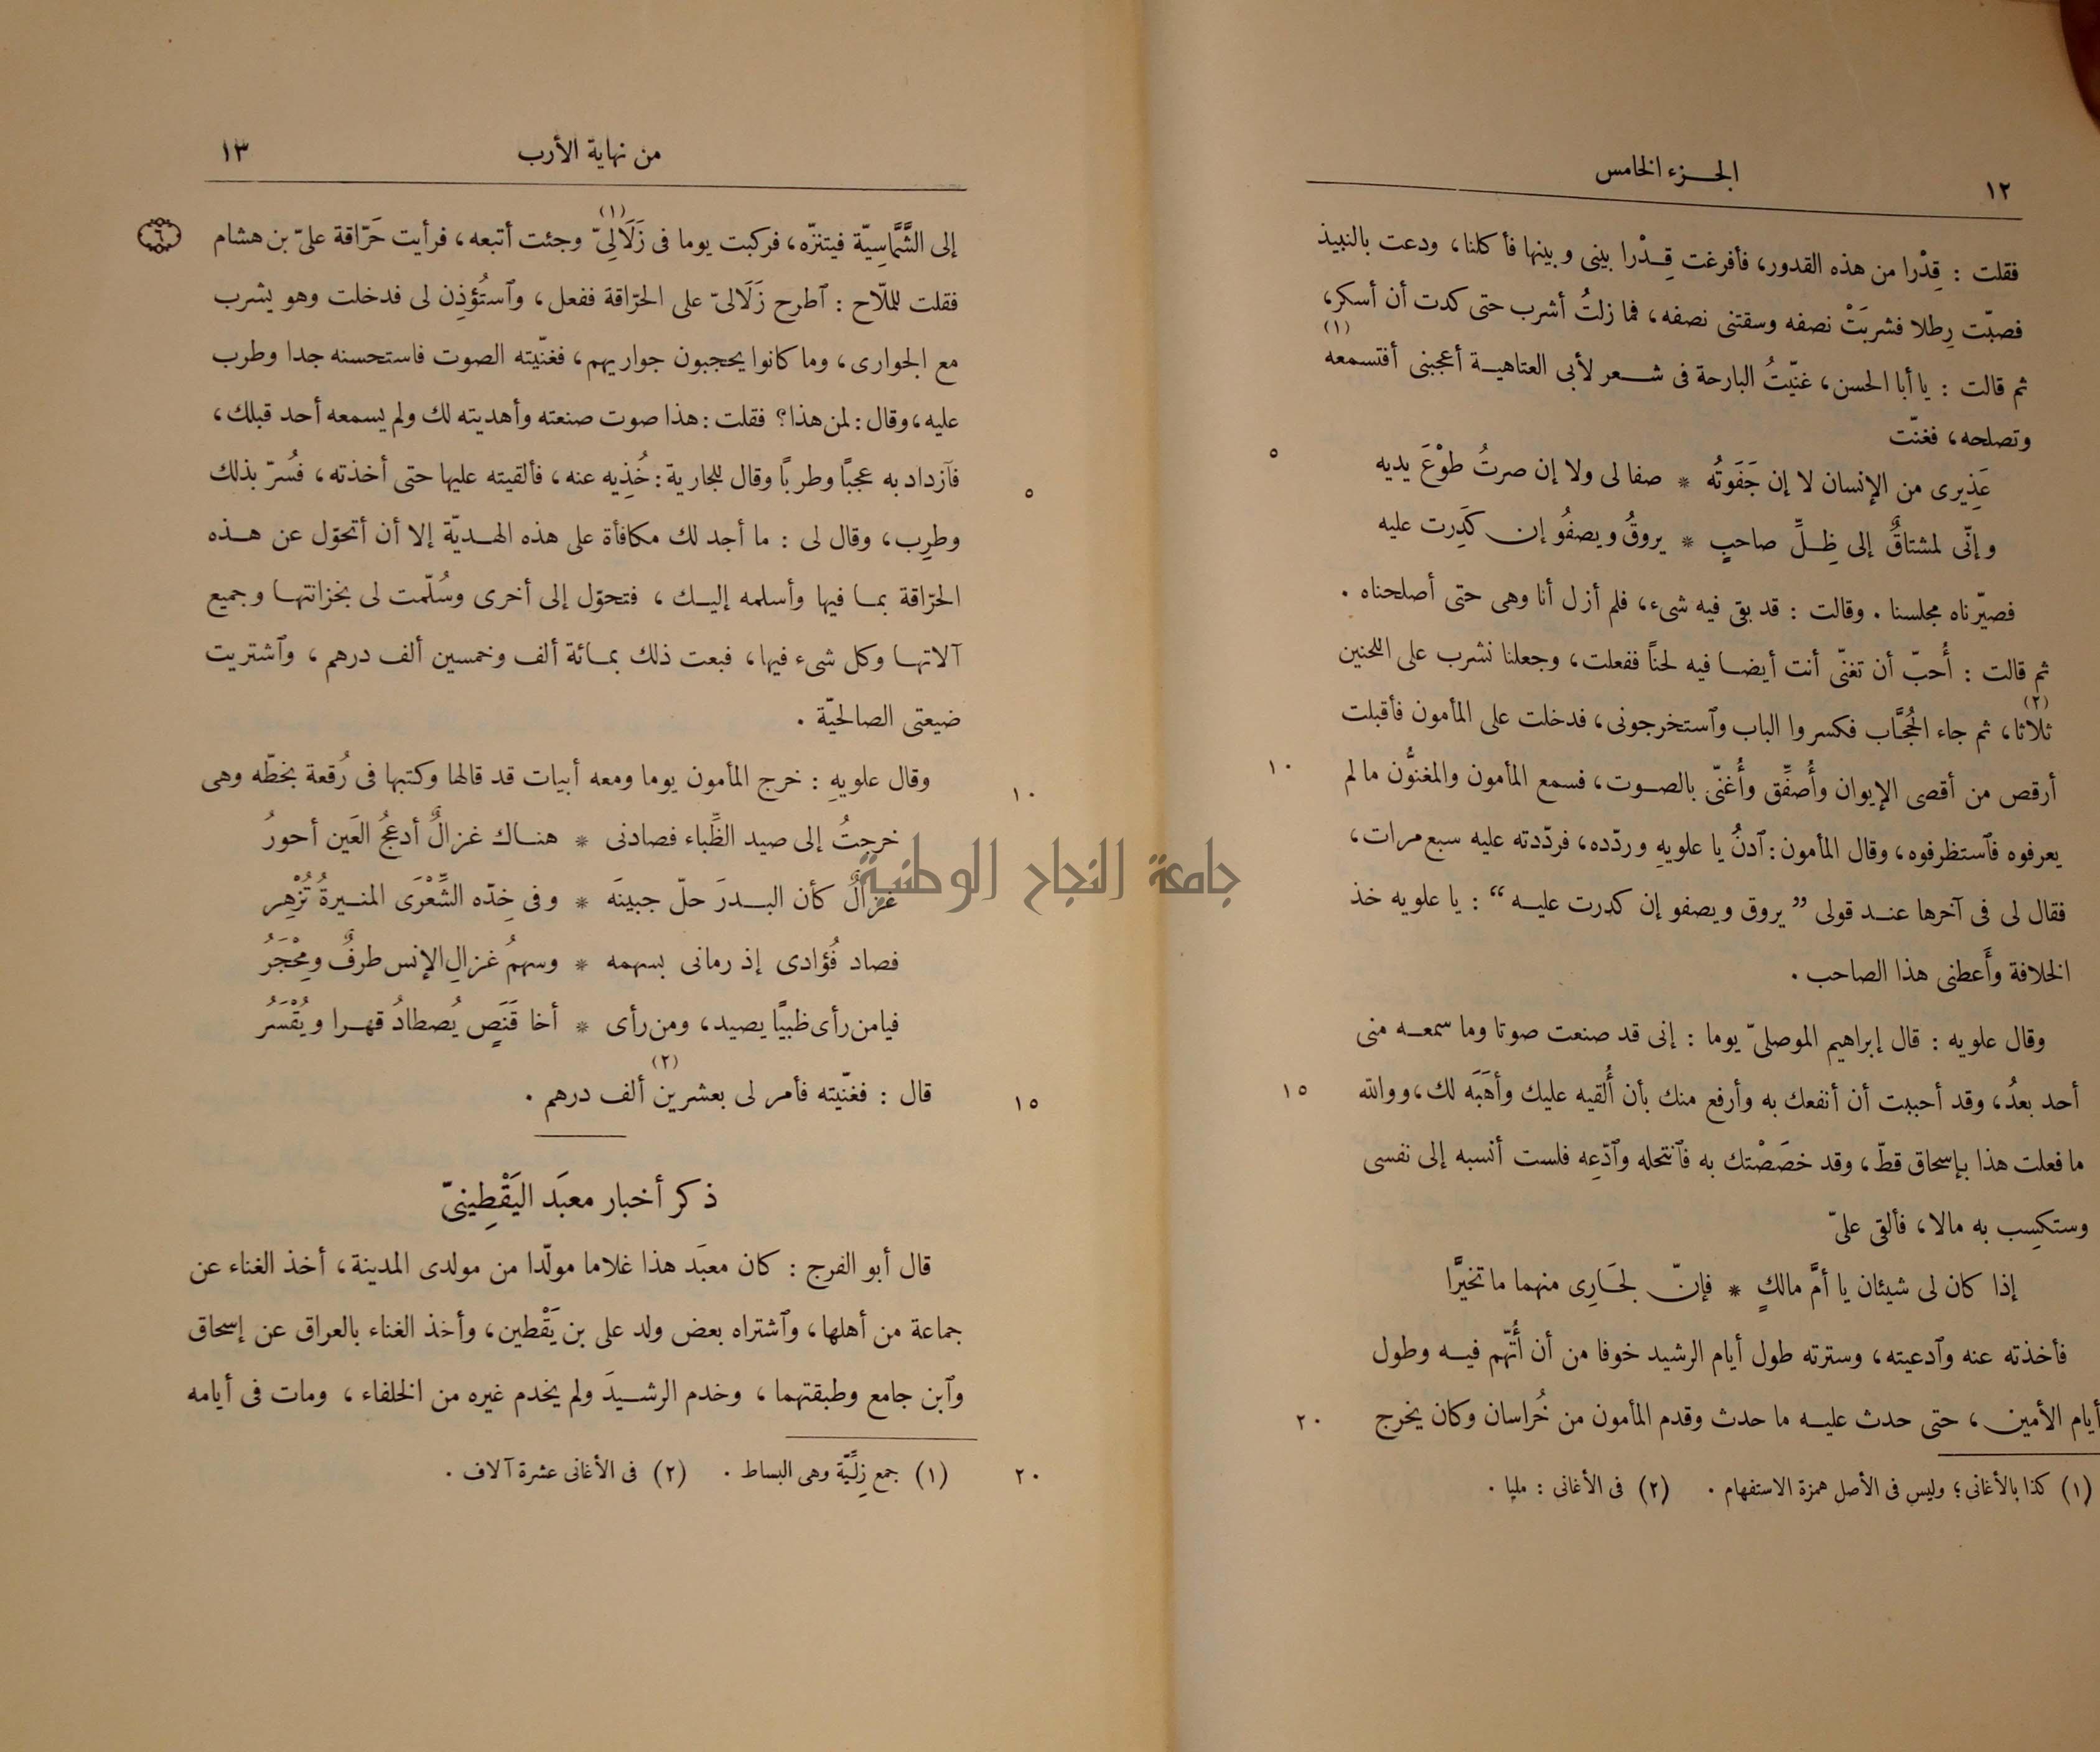 ١٢
الجزء الخامس
فقلت : قِدْرا من هذه القدور، فأفرغت قِدْرا بينى وبينها فأكلنا، ودعت بالنبيذ
فصبّت رِطلا فشربَتْ نصفه وسقتنى نصفه، فما زلتُ أشرب حتى كدت أن أسكر،
ثم قالت : يا أبا الحسن، غنّيتُ البارحة فى شعر لأبى العتاهية أعجبنى أفتسمعه (١)
وتصلحه، فغنّت
عَذِيرى من الإنسان لا إن جَفَوتُه * صفا لى ولا إن صرتُ طوْعَ يديه ٥
وإنّى لمشتاقٌ إلى ظِلِّ صاحبٍ * يروقُ ويصفُو إن كَدِرت عليه
فصيّرناه مجلسنا . وقالت : قد بقى فيه شىء، فلم أزل أنا وهى حتى أصلحناه .
ثم قالت : أُحبّ أن تغنّى أنت أيضا فيه لحناً ففعلت، وجعلنا نشرب على اللحنين
ثلاثا (٢)، ثم جاء الحُجَّاب فكسروا الباب وٱستخرجونى، فدخلت على المأمون فأقبلت
أرقص من أقصى الإيوان وأُصفِّق وأُغنّى بالصوت، فسمع المأمون والمغنُّون ما لم ١٠
يعرفوه فٱستظرفوه، وقال المأمون : ٱدنُ يا علويهِ وردّده، فردّدته عليه سبع مرات،
فقال لى فى آخرها عند قولى ”يروق ويصفو إن كدرت عليه“ : يا علويه خذ
الخلافة وأَعطنى هذا الصاحب .
وقال علويه : قال إبراهيم الموصلىّ يوما : إنى قد صنعت صوتا وما سمعه منى
أحد بعدُ، وقد أحببت أن أنفعك به وأرفع منك بأن أُلقيه عليك وأهَبَه لك، ووالله ١٥
ما فعلت هذا بإسحاق قطّ، وقد خصَصْتك به فٱنتحله وٱدّعِه فلست أنسبه إلى نفسى
وستكسِب به مالا، فألقى علىّ
إذا كان لى شيئان يا أمَّ مالكٍ * فإنّ لجَارِى منهما ما تخيرَّا
فأخذته عنه وٱدعيته، وسترته طول أيام الرشيد خوفا من أن أُتّهم فيه وطول
أيام الأمين، حتى حدث عليه ما حدث وقدم المأمون من خُراسان وكان يخرج ٢٠
(١) كذا بالأغانى؛ وليس فى الأصل همزة الاستفهام . (٢) فى الأغانى : مليا .
من نهاية الأرب
١٣
إلى الشَّمَّاسِيّة فيتنزّه، فركبت يوما فى زَلَالِىّ (١) وجئت أتبعه، فرأيت حَرّاقة علىّ بن هشام ٦
فقلت للملّاح : ٱطرح زَلَالىّ على الحرّاقة ففعل، وٱستُؤذِن لى فدخلت وهو يشرب
مع الجوارى، وما كانوا يحجبون جواريهم، فغنّيته الصوت فاستحسنه جدا وطرب
عليه، وقال : لمن هذا؟ فقلت : هذا صوت صنعته وأهديته لك ولم يسمعه أحد قبلك،
فٱزداد به عجبًا وطربًا وقال للجارية : خُذِيه عنه، فألقيته عليها حتى أخذته، فسُرّ بذلك ٥
وطرِب، وقال لى : ما أجد لك مكافأة على هذه الهديّة إلا أن أتحوّل عن هذه
الحرّاقة بما فيها وأسلمه إليك، فتحوّل إلى أخرى وسُلّمت لى بخزانتها وجميع
آلاتها وكل شىء فيها، فبعت ذلك بمائة ألف وخمسين ألف درهم، وٱشتريت
ضيعتى الصالحيّة .
وقال علويهِ : خرج المأمون يوما ومعه أبيات قد قالها وكتبها فى رُقعة بخطّه وهى ١٠
خرجتُ إلى صيد الظِّباء فصادنى * هناك غزالٌ أدعجُ العَين أحورُ
غزالٌ كأن البدرَ حلّ جبينَه * وفى خدّه الشِّعْرَى المنيرةُ تُزْهِر
فصاد فُؤادى إذ رمانى بسهمه * وسهمُ غزالِ الإنس طرفٌ ومِحْجَرُ
فيا من رأى ظبيًا يصيد، ومن رأى * أخا قَنَصٍ يُصطادُ قهرا ويُقْسَرُ
قال : فغنّيته فأمر لى بعشرين (٢) ألف درهم . ١٥
ذكر أخبار معبَد اليَقْطِينىّ
قال أبو الفرج : كان معبَد هذا غلاما مولّدا من مولدى المدينة، أخذ الغناء عن
جماعة من أهلها، وٱشتراه بعض ولد على بن يَقْطين، وأخذ الغناء بالعراق عن إسحاق
وٱبن جامع وطبقتهما، وخدم الرشيدَ ولم يخدم غيره من الخلفاء، ومات فى أيامه
(١) جمع زِلِّيّة وهى البساط . (٢) فى الأغانى عشرة آلاف . ٢٠
جامعة النجاح الوطنية